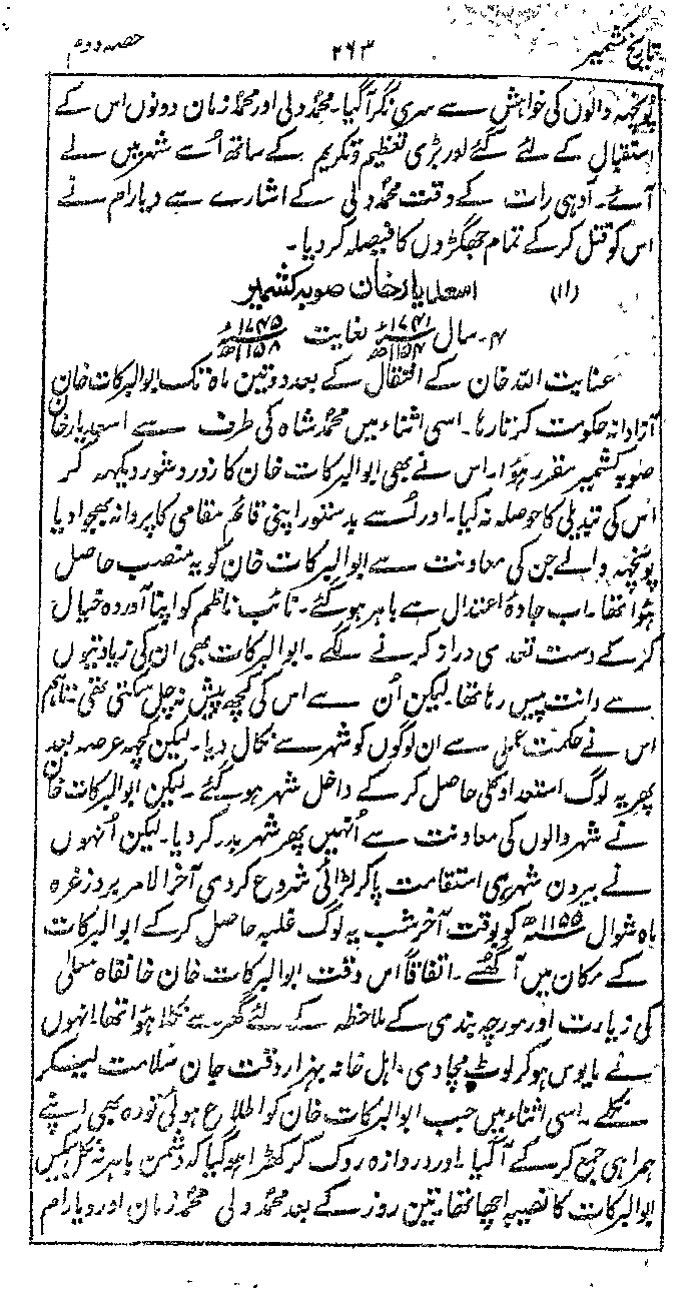 تاریخ کشمیر ۲۶۳ حصہ دوم
پونچھہ والوں کی خواہش سے سری نگر آگیا۔ محمد ولی اور محمد زمان دونوں اس کے
استقبال کے لئے گئے اور بڑی تعظیم و تکریم کے ساتھ اُسے شہر میں لے
آئے۔ آدہی رات کے وقت محمد ولی کے اشارے سے دیارام نے
اس کو قتل کر کے تمام جھگڑوں کا فیصلہ کر دیا۔
(۱۱) اسعد یار خان صوبہ کشمیر
۴۔ سال ۱۷۴۱ء ۱۱۵۴ھ لغایت ۱۷۴۵ء ۱۱۵۸ھ
عنایت اللہ خان کے انتقال کے بعد دو تین ماہ تک ابوالبرکات خان
آزادانہ حکومت کرتا رہا۔ اسی اثناء میں محمد شاہ کی طرف سے اسعد یار خان
صوبہ کشمیر مقرر ہؤا۔ اس نے بھی ابوالبرکات خان کا زور و شور دیکھہ کر
اُس کی تبدیلی کا حوصلہ نہ کیا۔ اور اُسے بدستور اپنی قائم مقامی کا پروانہ بھجوا دیا
پونچھہ والے جن کی معاونت سے ابوالبرکات خان کو یہ منصب حاصل
ہؤا تھا۔ اب جادۂ اعتدال سے باہر ہو گئے۔ نائب ناظم کو اپنا آوردہ خیال
کر کے دست تعدی دراز کرنے لگے۔ ابوالبرکات بھی ان کی زیادتیوں
سے دانت پیس رہا تھا لیکن اُن سے اس کی کچھہ پیش نہ چل سکتی تھی۔ تاہم
اس نے حکمت عملی سے ان لوگوں کو شہر سے نکال دیا۔ لیکن کچھہ عرصہ بعد
پھر یہ لوگ استعداد کلی حاصل کر کے داخل شہر ہو گئے۔ لیکن ابوالبرکات خان
نے شہر والوں کی معاونت سے اُنہیں پھر شہر بدر کر دیا۔ لیکن اُنہوں
نے بیرون شہر ہی استقامت پا کر لڑائی شروع کر دی آخر الامر بروز غرہ
ماہ شوال ۱۱۵۵ھ کو بوقت آخر شب یہ لوگ غلبہ حاصل کر کے ابوالبرکات
کے مکان میں آ گھسے۔ اتفاقاً اس وقت ابوالبرکات خان خانقاہ معلیٰ
کی زیارت اور مورچہ بندی کے ملاحظہ کے لئے گھر سے نکلا ہؤا تھا۔ انہوں
نے مایوس ہو کر لوٹ مچا دی۔ اہل خانہ بہزار دقت جان سلامت لیکر
نکلے۔ اسی اثناء میں جب ابوالبرکات خان کو اطلاع ہوئی تو وہ بھی اپنے
ہمراہی جمع کر کے آ گیا۔ اور دروازہ روک کر کھڑا ہو گیا کہ دشمن باہر نہ نکل سکیں
ابوالبرکات کا نصیبہ اچھا تھا۔ تین روز کے بعد محمد ولی محمد زمان اور دیا رام